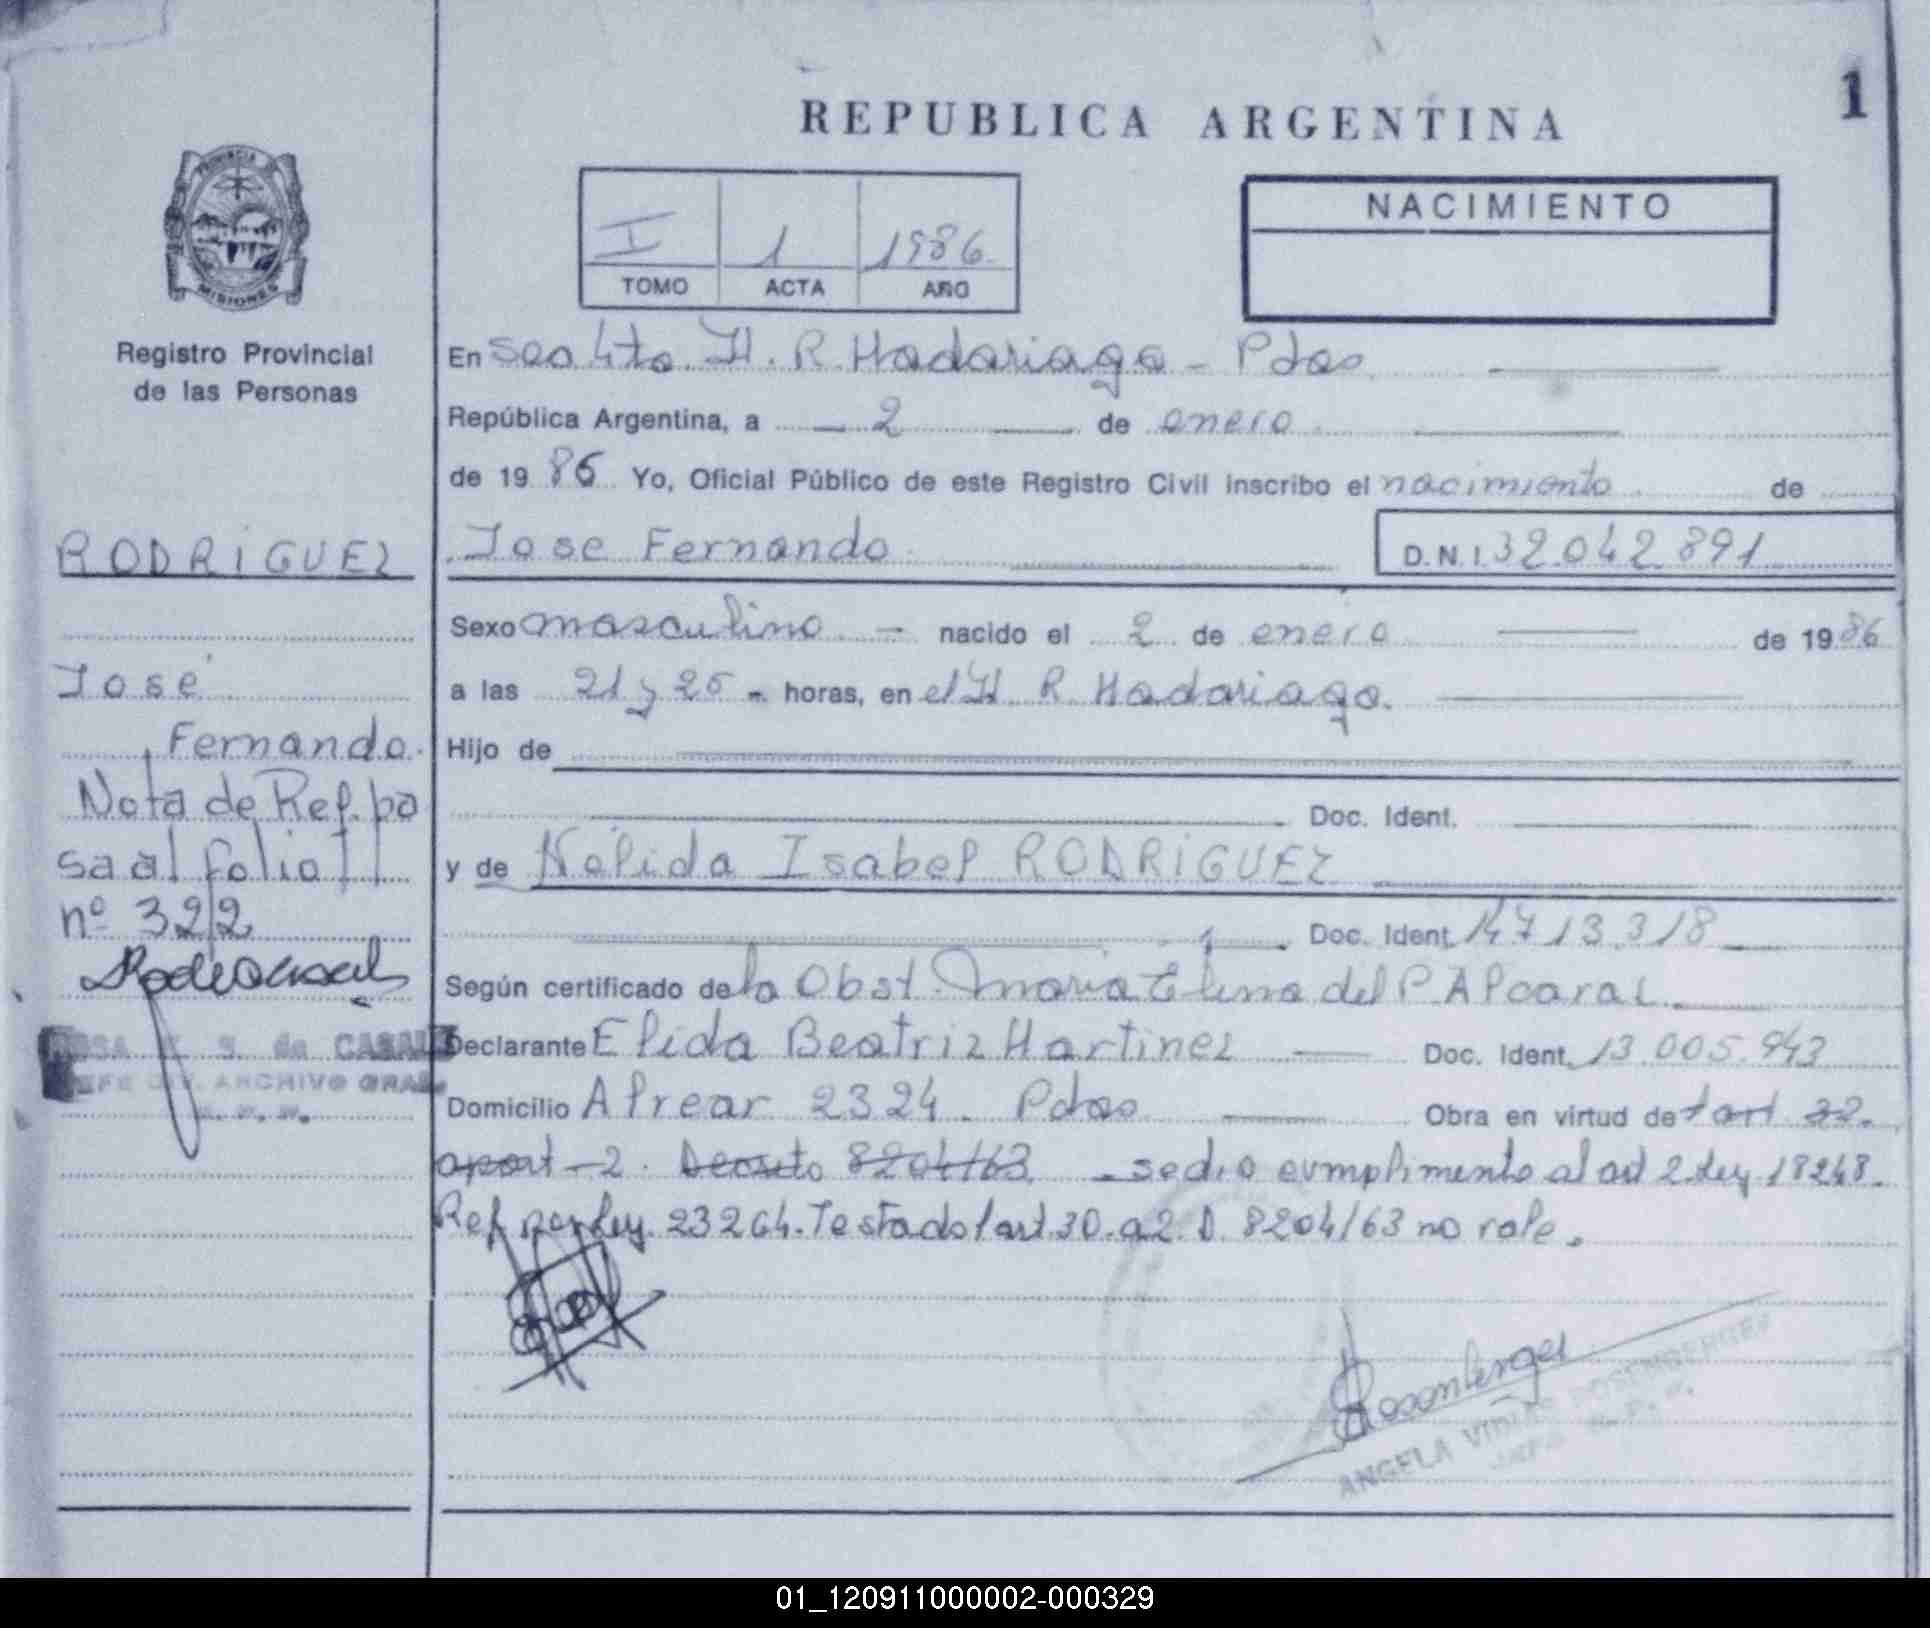 REPUBLICA ARGENTINA
1
PROVINCIA DE
MISIONES
Registro Provincial
de las Personas
I 1 1986
TOMO ACTA AÑO
NACIMIENTO
En 4to. H. R. Madariaga - Pdas
República Argentina, a 2 de enero
de 19 86 Yo, Oficial Público de este Registro Civil inscribo el nacimiento de
RODRIGUEZ
Jose Fernando
D.N.I. 32.042.891
José
Fernando.
Sexo masculino - nacido el 2 de enero de 19 86
a las 21 y 25 - horas, en el H. R. Madariaga.
Hijo de
Doc. Ident.
y de Nélida Isabel RODRIGUEZ
Doc. Ident. 14713.318
Nota de Ref. pa
sa al folio II
nº 322
CASAL
ARCHIVO GRAL
Según certificado de la Obst. Maria Elena del P. Alcaraz
Declarante Elida Beatriz Martinez Doc. Ident. 13.005.943
Domicilio Alvear 2324. Pdas Obra en virtud de
2. Decreto 8204/63 - se dio cumplimento al art 2 Ley 18248.
Ref por Ley. 23264. Testado 1 art. 30. a 2. D. 8204/63 no vale.
Rosenberger
ANGELA ROSENBERGER
01_120911000002-000329